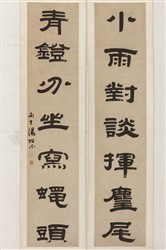 小雨對談揮麈尾
青鐙分坐寫蠅頭